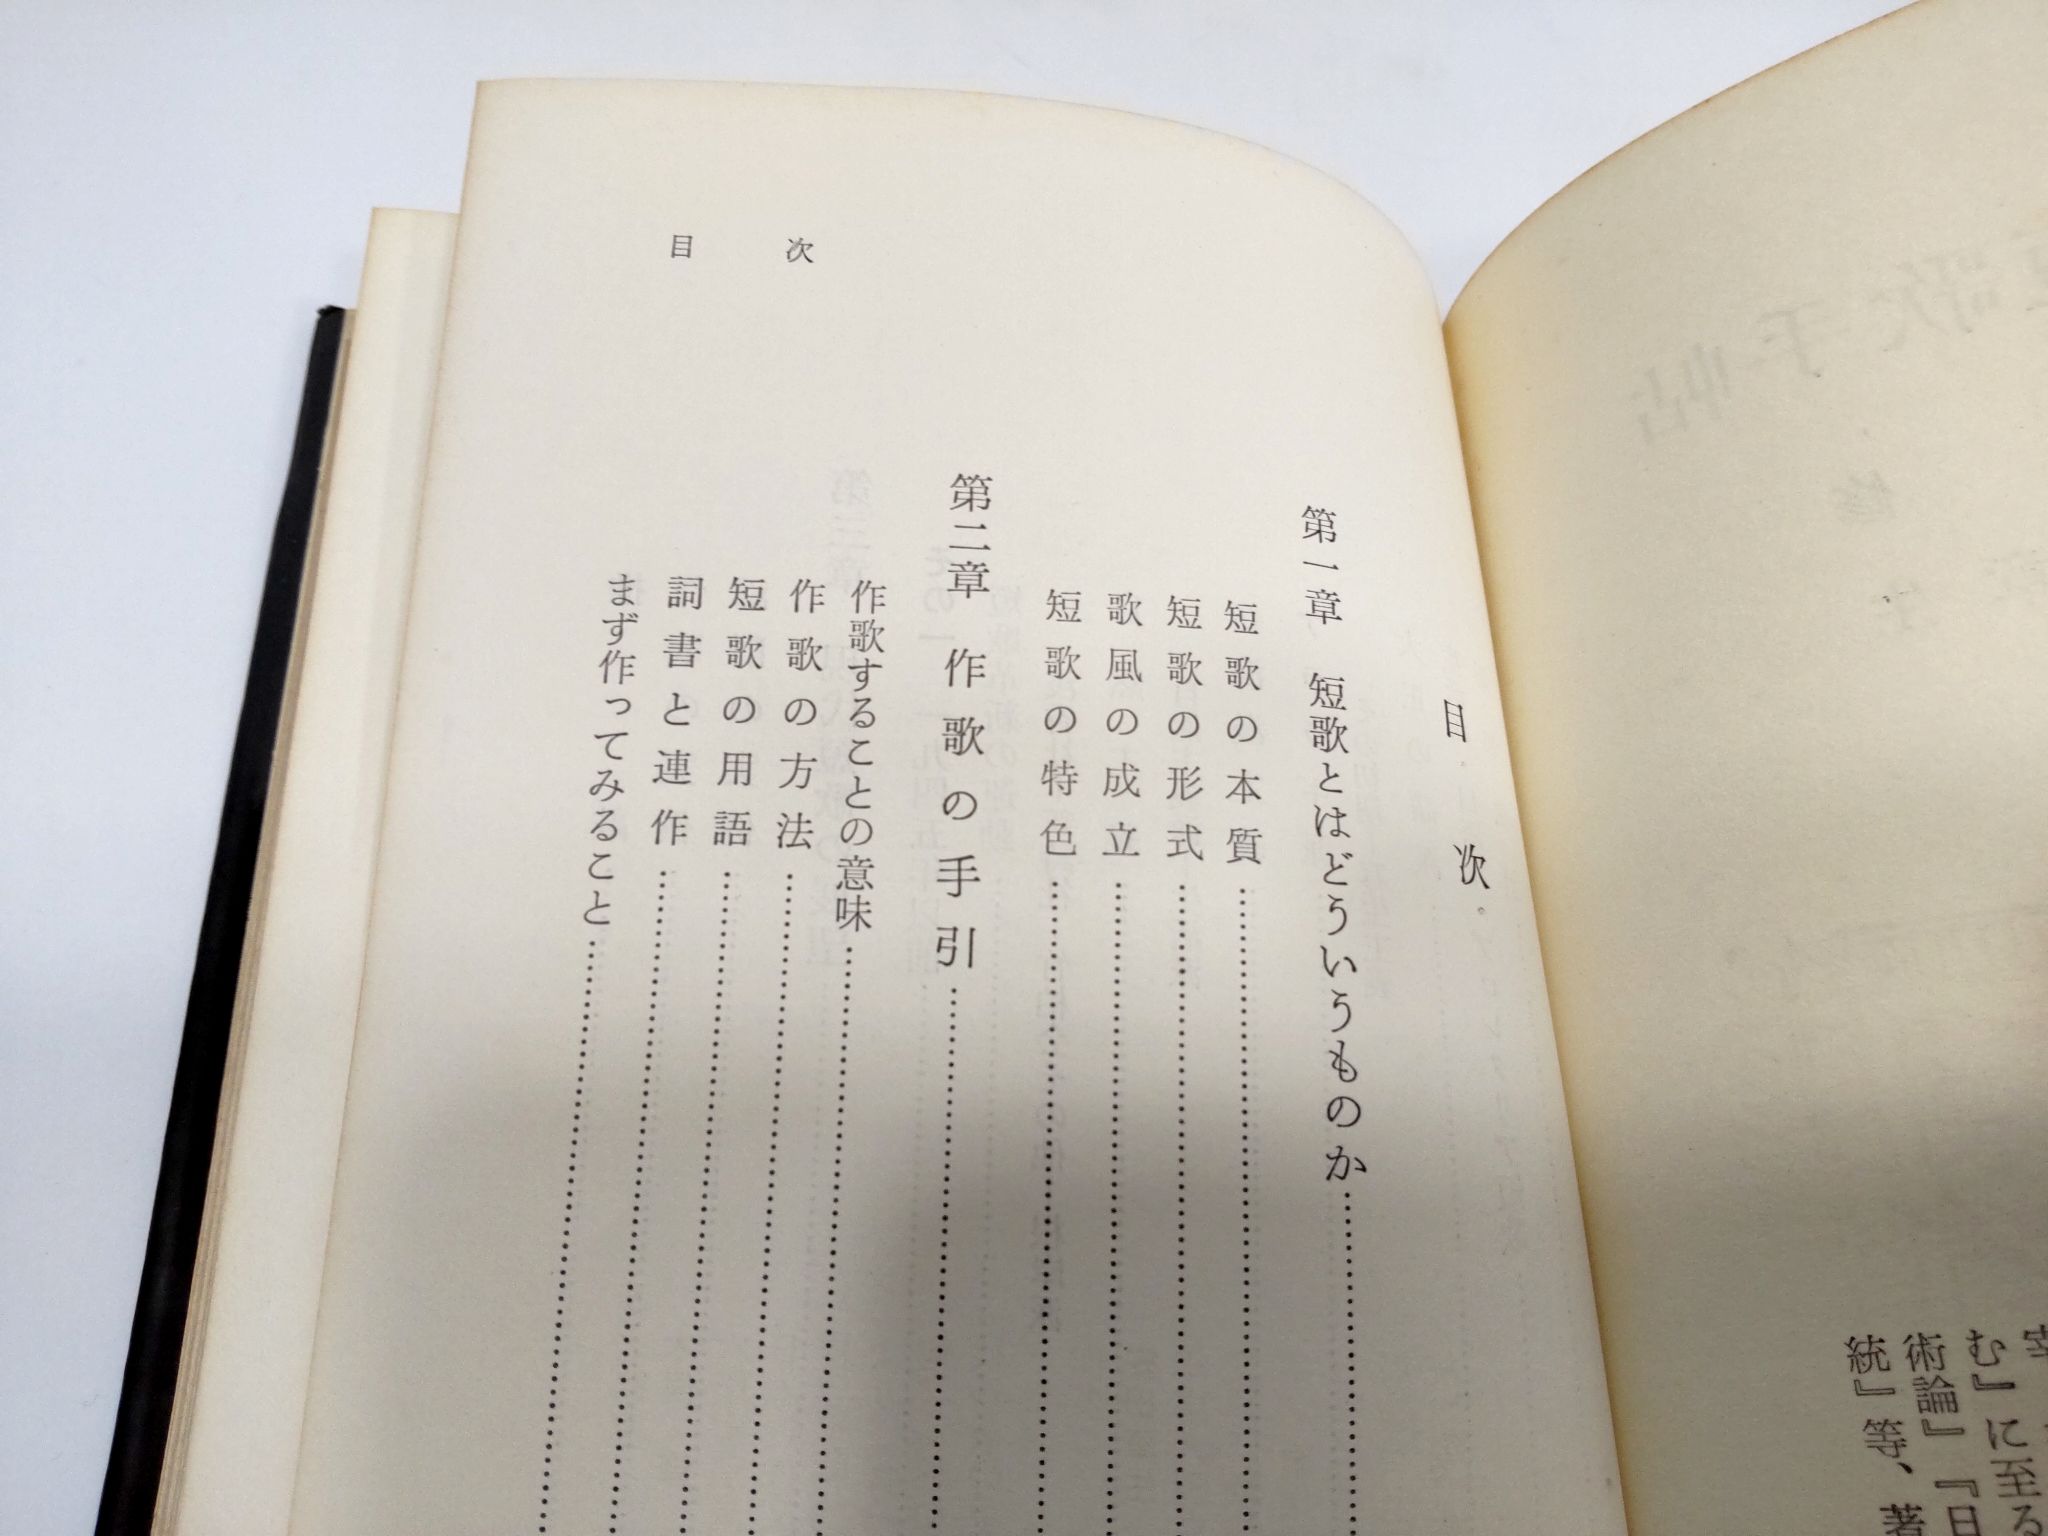 目次
第一章 短歌とはどういうものか
短歌の本質
短歌の形式
歌風の成立
短歌の特色
第二章 作歌の手引
作歌することの意味
作歌の方法
短歌の用語
詞書と連作
まず作ってみること
目次
む』に至る
術論』『日
統』等、著